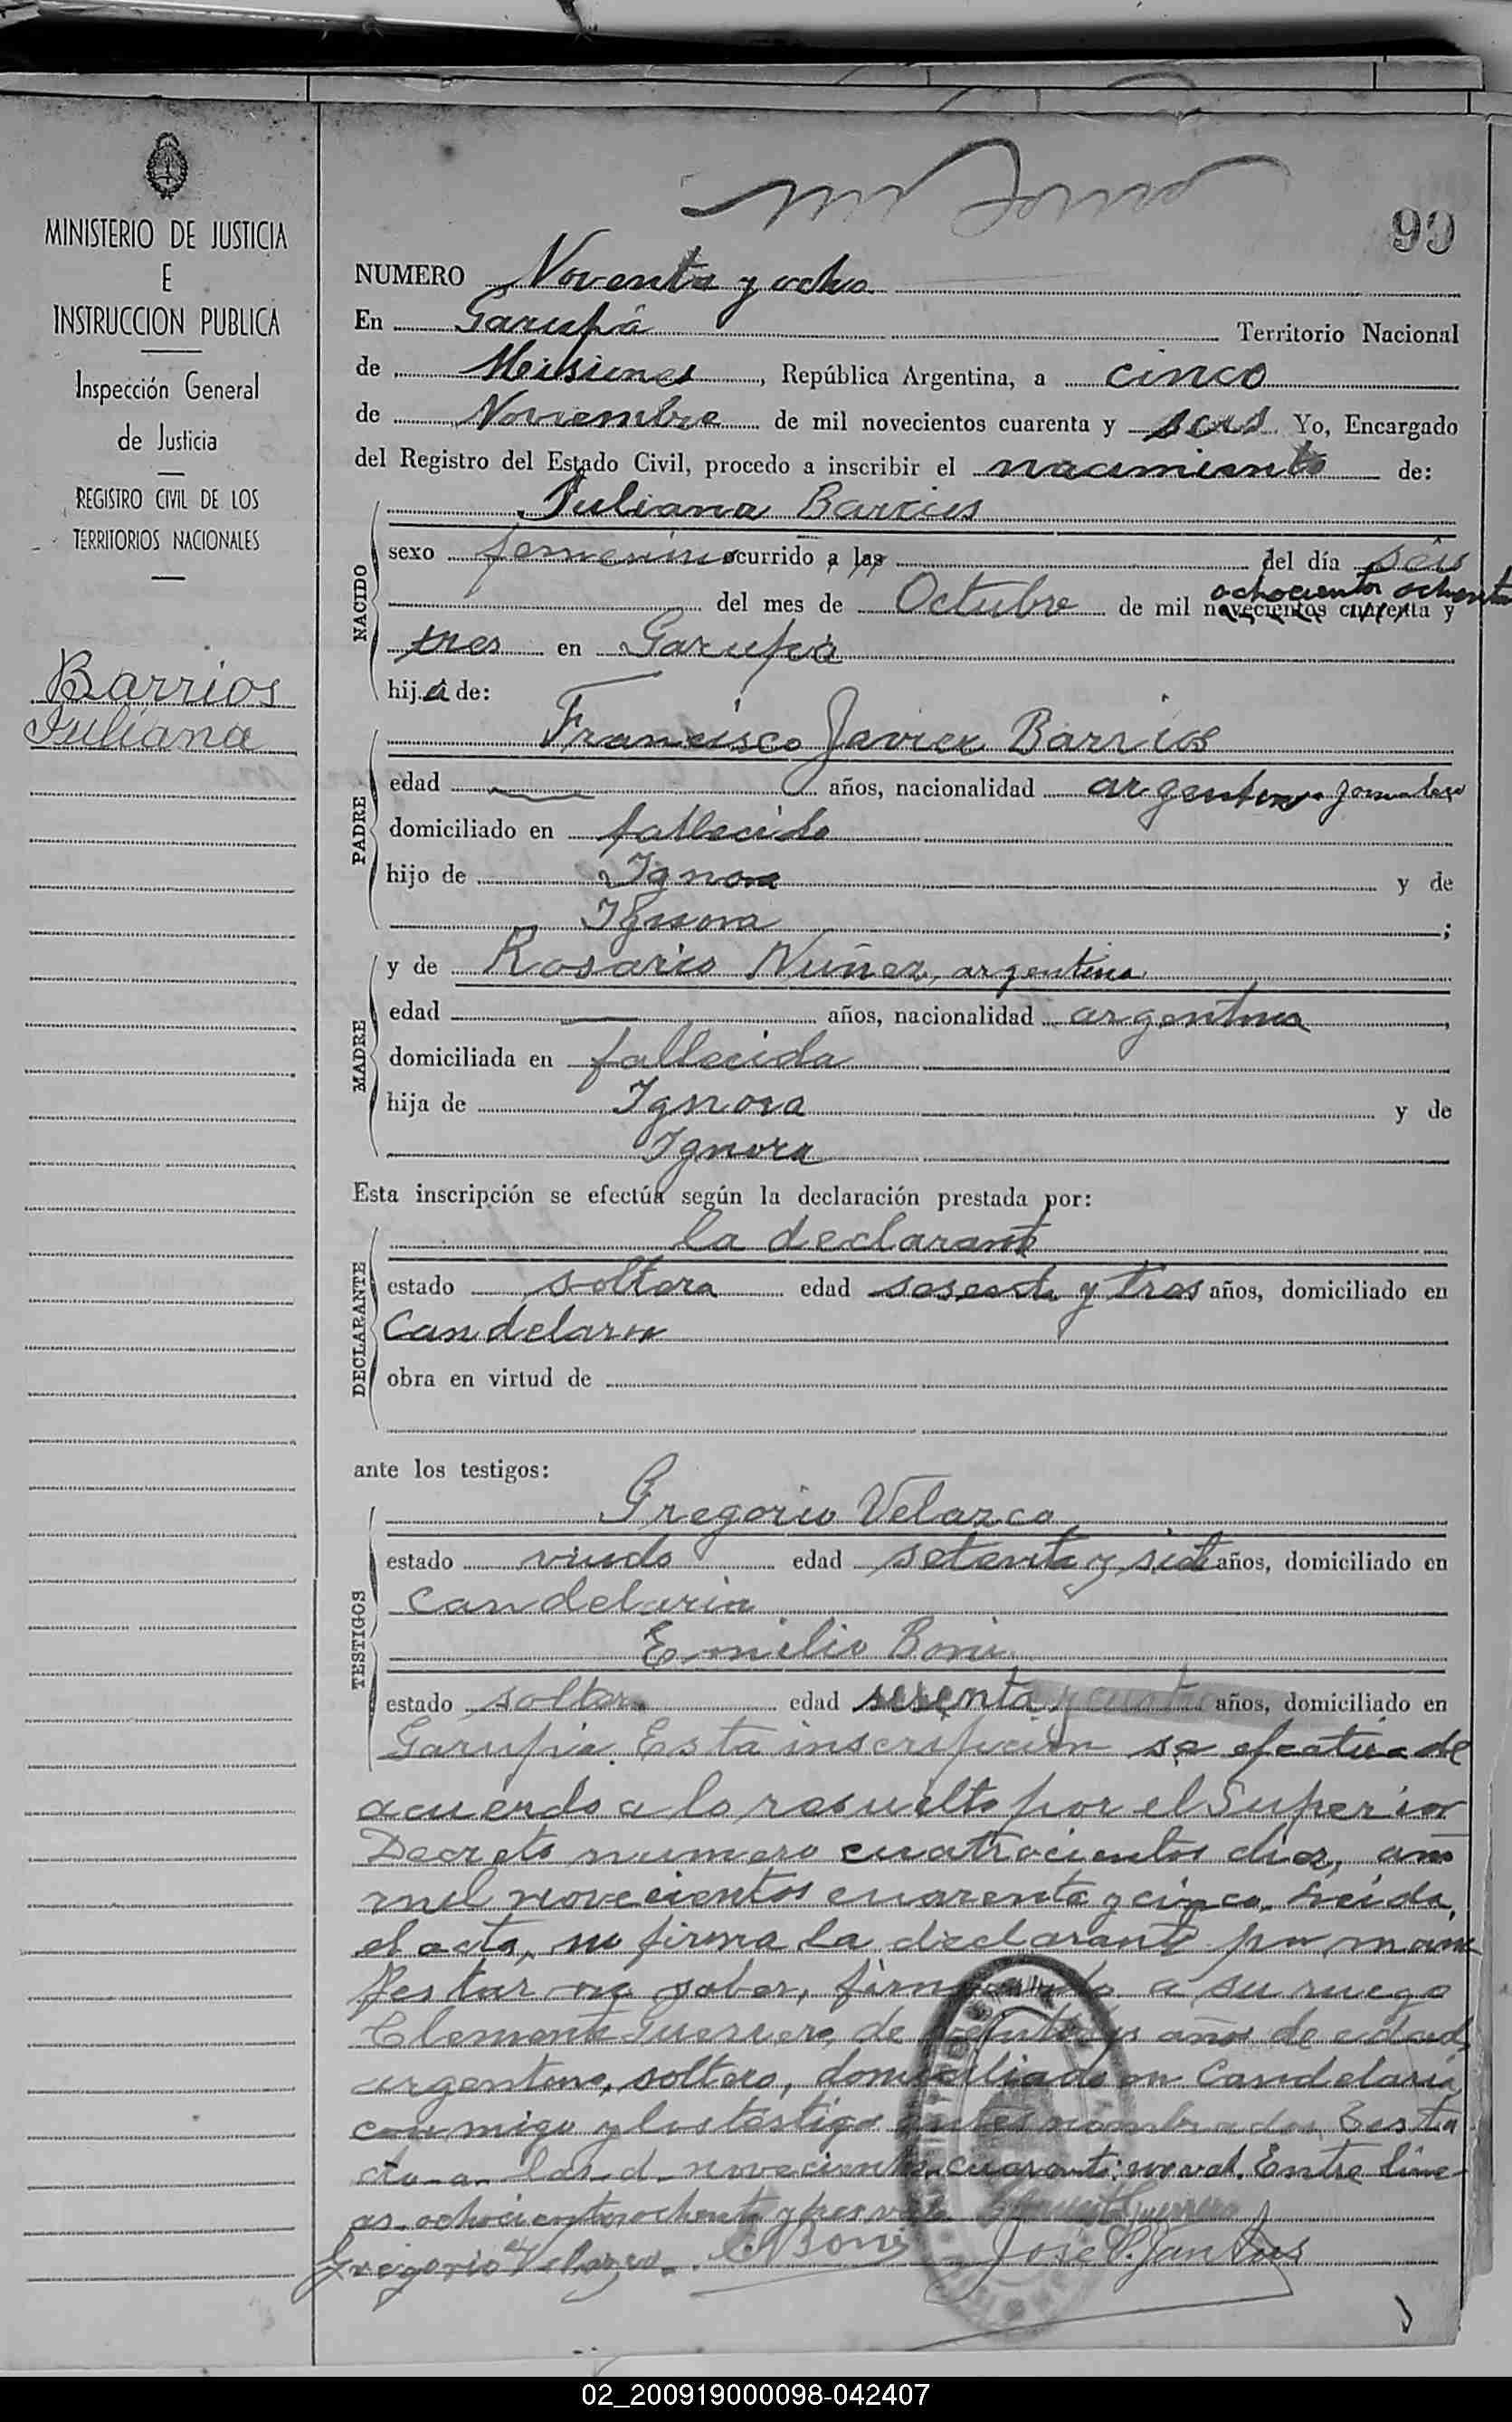 MINISTERIO DE JUSTICIA
E
INSTRUCCION PUBLICA
Inspección General
de Justicia
REGISTRO CIVIL DE LOS
TERRITORIOS NACIONALES
Barrios
Juliana
99
NUMERO Noventa y ocho
En Garupá Territorio Nacional
de Misiones, República Argentina, a cinco
de Noviembre de mil novecientos cuarenta y seis Yo, Encargado
del Registro del Estado Civil, procedo a inscribir el nacimiento de:
NACIDO
Juliana Barrios
sexo femenino ocurrido a las del día seis
ochocientos ochenta
del mes de Octubre de mil novecientos cuarenta y
tres en Garupá
hija de:
PADRE
Francisco Javier Barrios
edad años, nacionalidad argentino jornalero
domiciliado en fallecido
hijo de Ignora y de
Ignora ;
MADRE
y de Rosario Nuñez, argentina
edad años, nacionalidad argentina
domiciliada en fallecida
hija de Ignora y de
Ignora
Esta inscripción se efectúa según la declaración prestada por:
DECLARANTE
la declarante
estado soltera edad sesenta y tres años, domiciliado en
Candelaria
obra en virtud de
ante los testigos:
TESTIGOS
Gregorio Velazco
estado viudo edad setenta y siete años, domiciliado en
Candelaria
Emilio Boni
estado soltero edad sesenta y cuatro años, domiciliado en
Garupá. Esta inscripción se efectúa de
acuerdo a lo resuelto por el Superior
Decreto numero cuatrocientos diez, año
mil novecientos cuarenta y cinco. Leida
el acta, no firma la declarante por mani
festar no saber, firmando a su ruego
Clemente Guerrero, de años de edad,
argentino, soltero, domiciliado en Candelaria
conmigo y los testigos antes nombrados. Testa
do a las d novecientos cuarenta: no val. Entre line-
as ochocientos ochenta y tres vale Clemente Guerrero
Gregorio Velazco. E. Boni José C. Jan
02_200919000098-042407